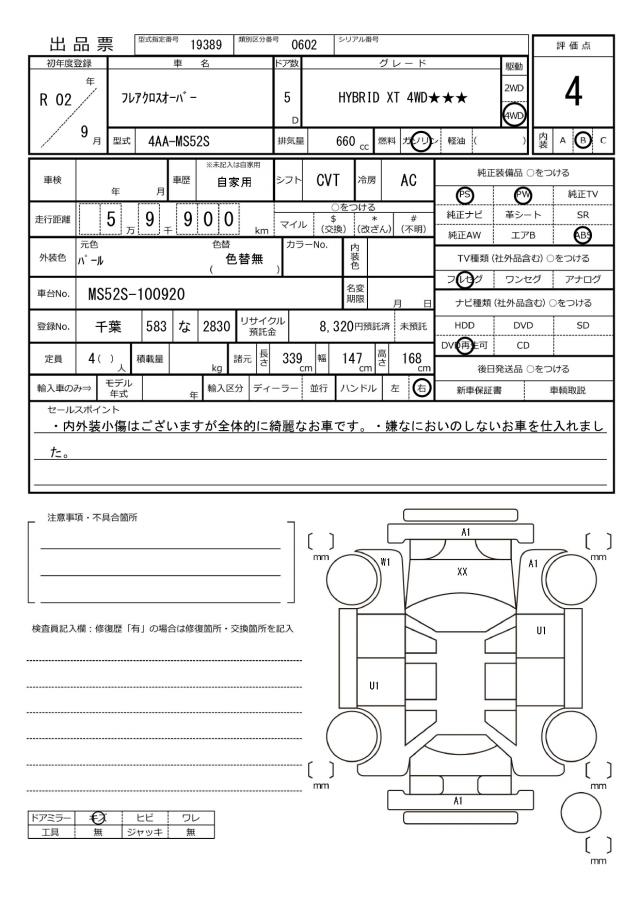 出品票
型式指定番号 19389 類別区分番号 0602 シリアル番号
評価点
4
初年度登録 車名 ドア数 グレード 駆動
R 02 年 9 月
フレアクロスオーバー
5 D
HYBRID XT 4WD★★★
2WD
4WD
型式 4AA-MS52S 排気量 660 cc 燃料 ガソリン 軽油 ( )
内装 A B C
車検 年 月 車歴 ※未記入は自家用 自家用 シフト CVT 冷房 AC
走行距離 5 万 9 千 9 0 0 km
○をつける
マイル $(交換) *(改ざん) #(不明)
外装色 元色 パール 色替 ( 色替無 ) カラーNo. 内装色
車台No. MS52S-100920 名変期限 月 日
登録No. 千葉 583 な 2830 リサイクル預託金 8,320円預託済 未預託
定員 4( )人 積載量 kg 諸元 長さ 339 cm 幅 147 cm 高さ 168 cm
輸入車のみ⇒ モデル年式 年 輸入区分 ディーラー 並行 ハンドル 左 右
純正装備品 ○をつける
PS PW 純正TV
純正ナビ 革シート SR
純正AW エアB ABS
TV種類(社外品含む) ○をつける
フルセグ ワンセグ アナログ
ナビ種類(社外品含む) ○をつける
HDD DVD SD
DVD再生可 CD
後日発送品 ○をつける
新車保証書 車輌取説
セールスポイント
・内外装小傷はございますが全体的に綺麗なお車です。・嫌なにおいのしないお車を仕入れまし
た。
注意事項・不具合箇所
検査員記入欄：修復歴「有」の場合は修復箇所・交換箇所を記入
ドアミラー キズ ヒビ ワレ
工具 無 ジャッキ 無
A1
〔 〕mm
〔 〕mm
W1
A1
XX
U1
U1
〔 〕mm
〔 〕mm
A1
〔 〕mm